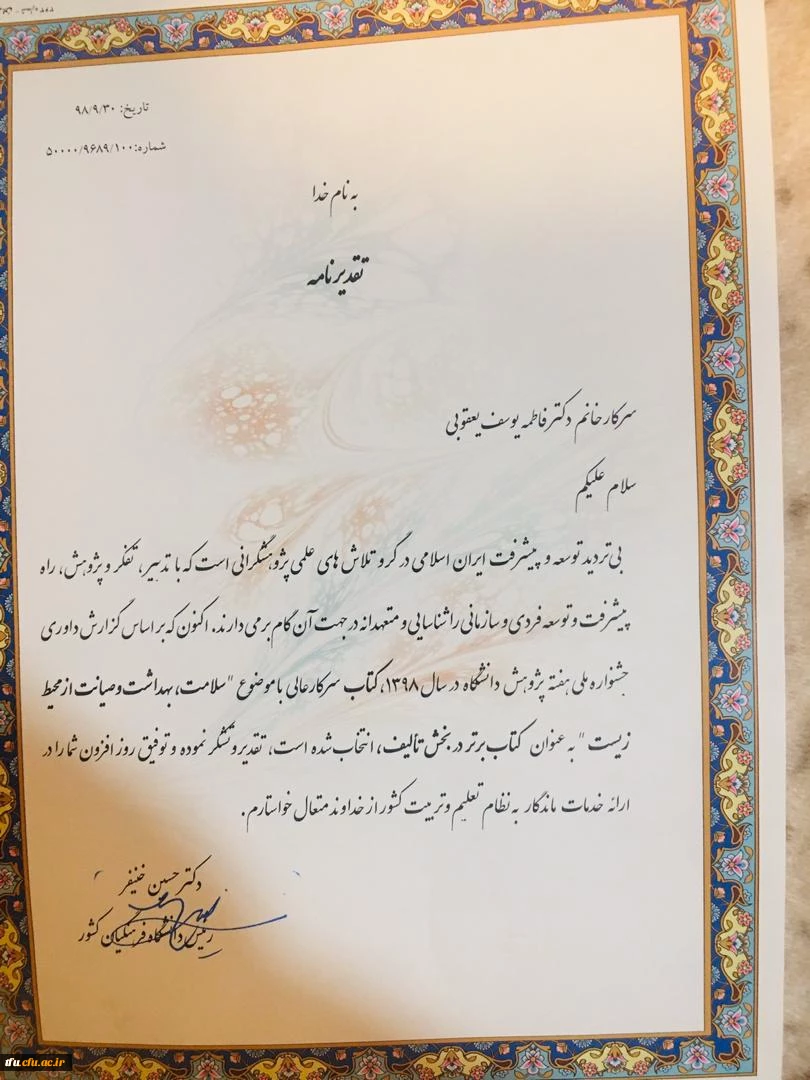 تاریخ: ۹۸/۹/۳۰
شماره: ۵۰۰۰۰/۹۶۸۹/۱۰۰
به نام خدا
تقدیرنامه
سرکار خانم دکتر فاطمه یوسف یعقوبی
سلام علیکم
بی تردید توسعه و پیشرفت ایران اسلامی در گرو تلاش های علمی پژوهشگرانی است که با تدبیر، تفکر و پژوهش، راه
پیشرفت و توسعه فردی و سازمانی را شناسایی و متعهدانه در جهت آن گام برمی دارند. اکنون که بر اساس گزارش داوری
جشنواره ملی هفته پژوهش دانشگاه در سال ۱۳۹۸، کتاب سرکارعالی با موضوع "سلامت، بهداشت و صیانت از محیط
زیست" به عنوان کتاب برتر در بخش تألیف، انتخاب شده است، تقدیر و تشکر نموده و توفیق روز افزون شما را در
ارائه خدمات ماندگار به نظام تعلیم و تربیت کشور از خداوند متعال خواستارم.
دکتر حسین خنیفر
رئیس دانشگاه فرهنگیان کشور
tfu.cfu.ac.ir